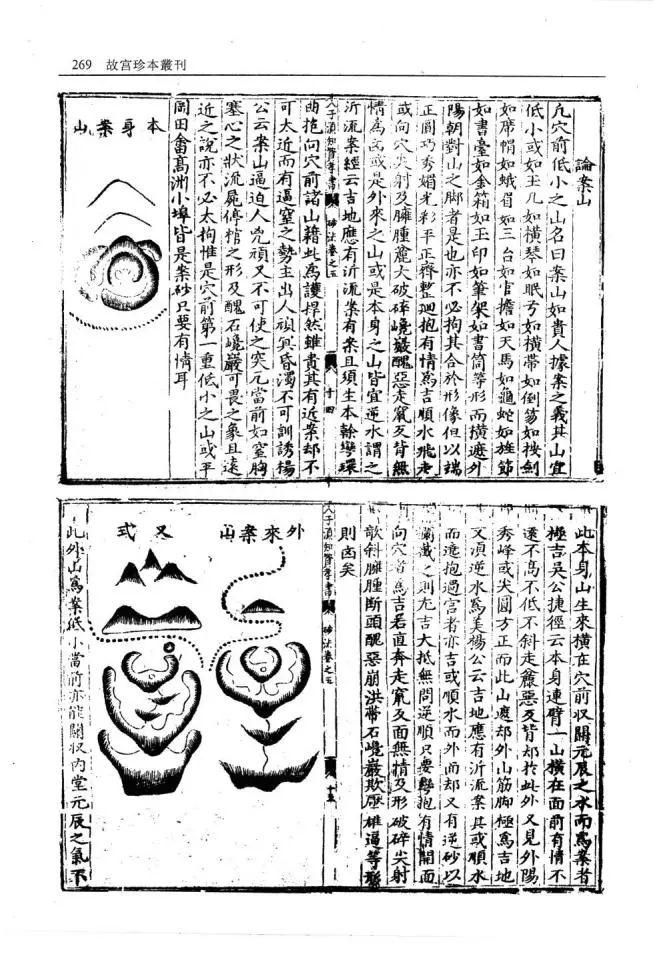 269 故宮珍本叢刊
論案山
凡穴前低小之山名曰案山如貴人據案之義其山宜
低小或如玉几如橫琴如眠弓如橫帶如倒笏如按劍
如席帽如蛾眉如三台如官擔如天馬如龜蛇如旌節
如書臺如金箱如玉印如筆架如書筒等形而橫遮外
陽朝對山之脚者是也亦不必拘其合於形像但以端
正圓巧秀媚光彩平正齊整迴抱有情為吉順水飛走
或向穴尖射及臃腫麄大破碎巉巖醜惡走竄反背無
情為凶或是外來之山或是本身之山皆宜逆水謂之
沂流案經云吉地應有沂流案有案且須生本幹彎環
曲抱向穴前諸山藉此為護捍然雖貴其有近案却不
可太近而有逼窒之勢主出人頑與昏濁不可訓誘楊
公云案山逼迫人兇頑又不可使之突兀當前如窒胸
塞心之狀流屍停棺之形及醜石巉巖可畏之象且遠
近之說亦不必太拘惟是穴前第一重低小之山或平
岡田畲高洲小埠皆是案砂只要有情耳
本身案山
人子須知資孝書 砂法卷之五 十四
此本身山生來橫在穴前収關元辰之水而為案者
極吉吳公捷徑云本身連臂一山橫在面前有情不
遠不高不低不斜走麄惡反背却扵此外又見外陽
秀峰或尖圓方正而此山遮却外山筋脚極為吉地
又須逆水為美楊公云吉地應有沂流案其或順水
而遶抱過宮者亦吉或順水而外面却又有逆砂以
攔截之則尤吉大抵無問逆順只要彎抱有情開面
向穴者為吉若直奔走竄反面無情及形破碎尖射
歆斜臃腫斷頭醜惡崩洪帶石巉巖欺壓雄逼等形
則凶矣
人子須知資孝書 砂法卷之五 十五
外來案山
又式
此外山為案低小當前亦能關収內堂元辰之氣不